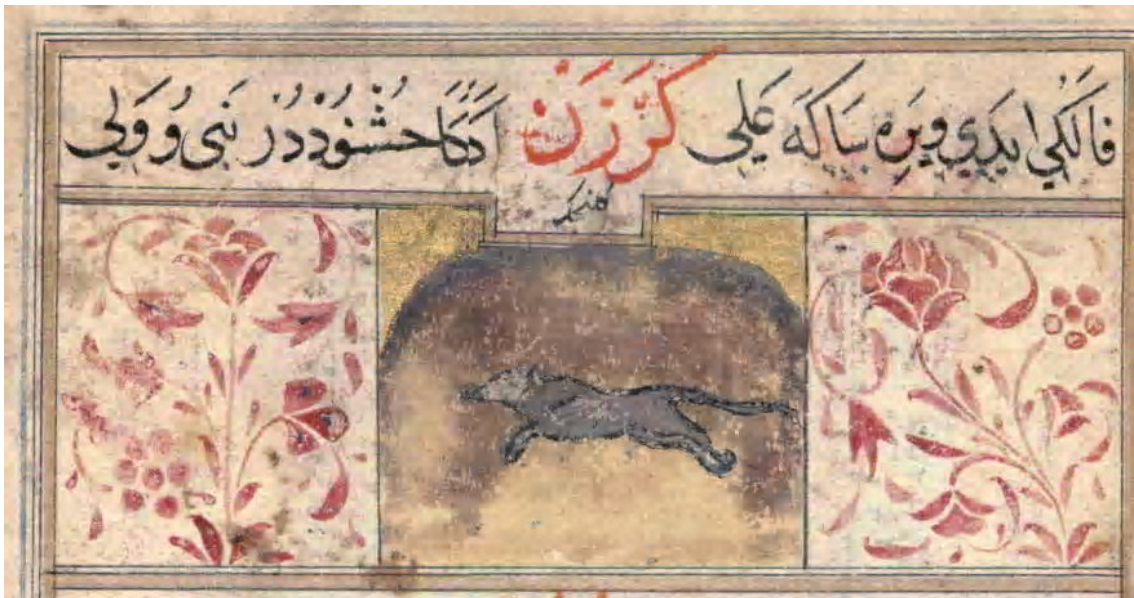 فَالَكِي ايَدِي وِيَرِه سَاكَه عَلِي كَرَزَنْ ادَكَا حُشْنُودْدُرْ نَبِي وُ وَلِي